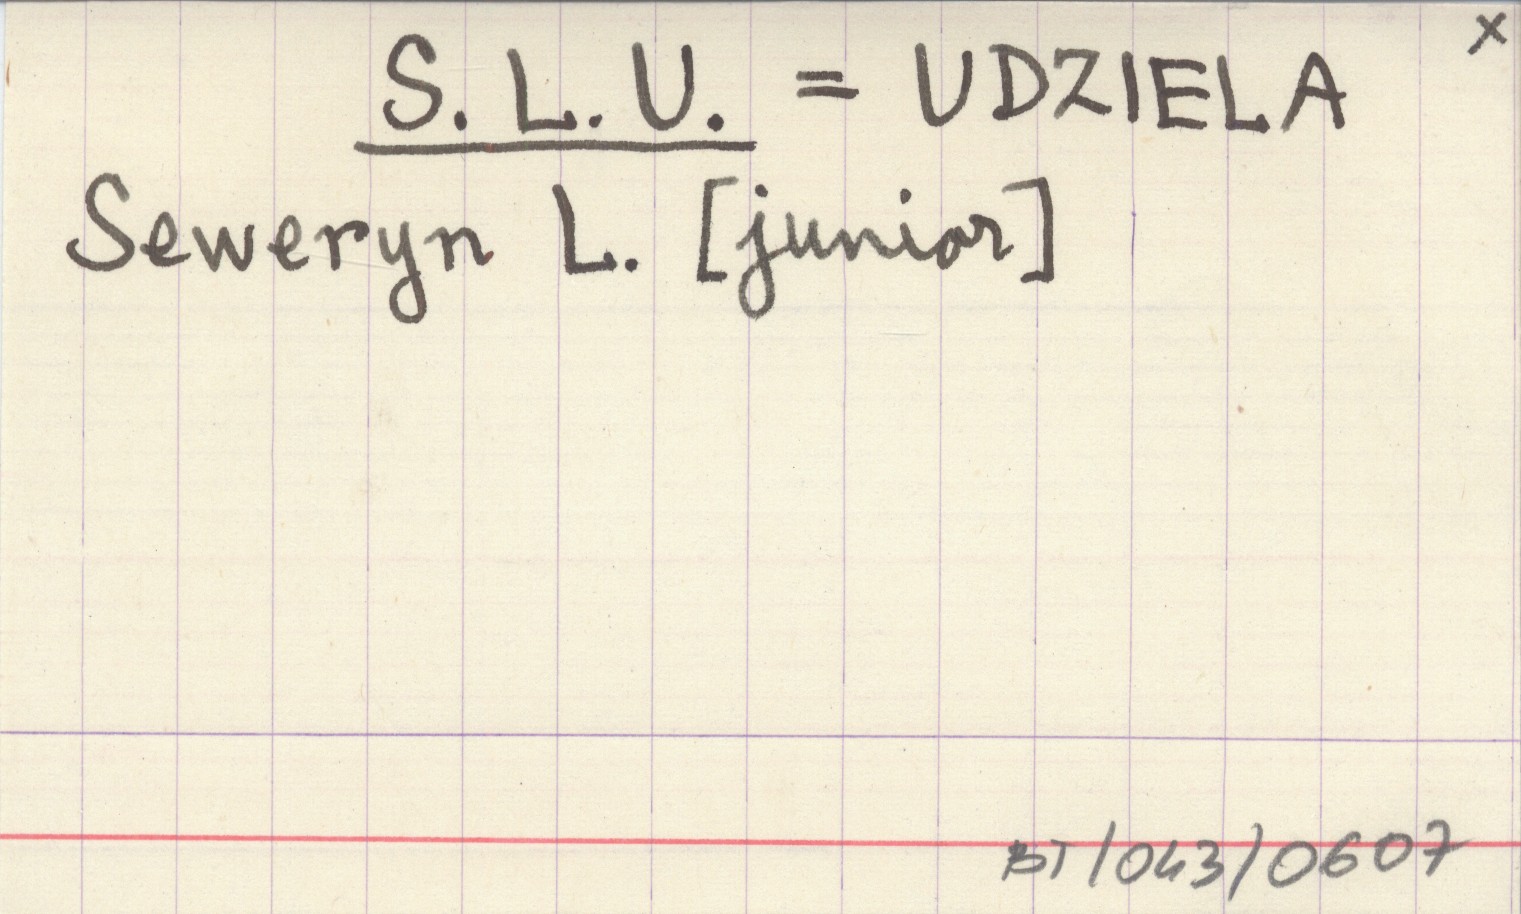 x
S. L. U. = UDZIELA
Seweryn L. [junior]
BT/043/0607